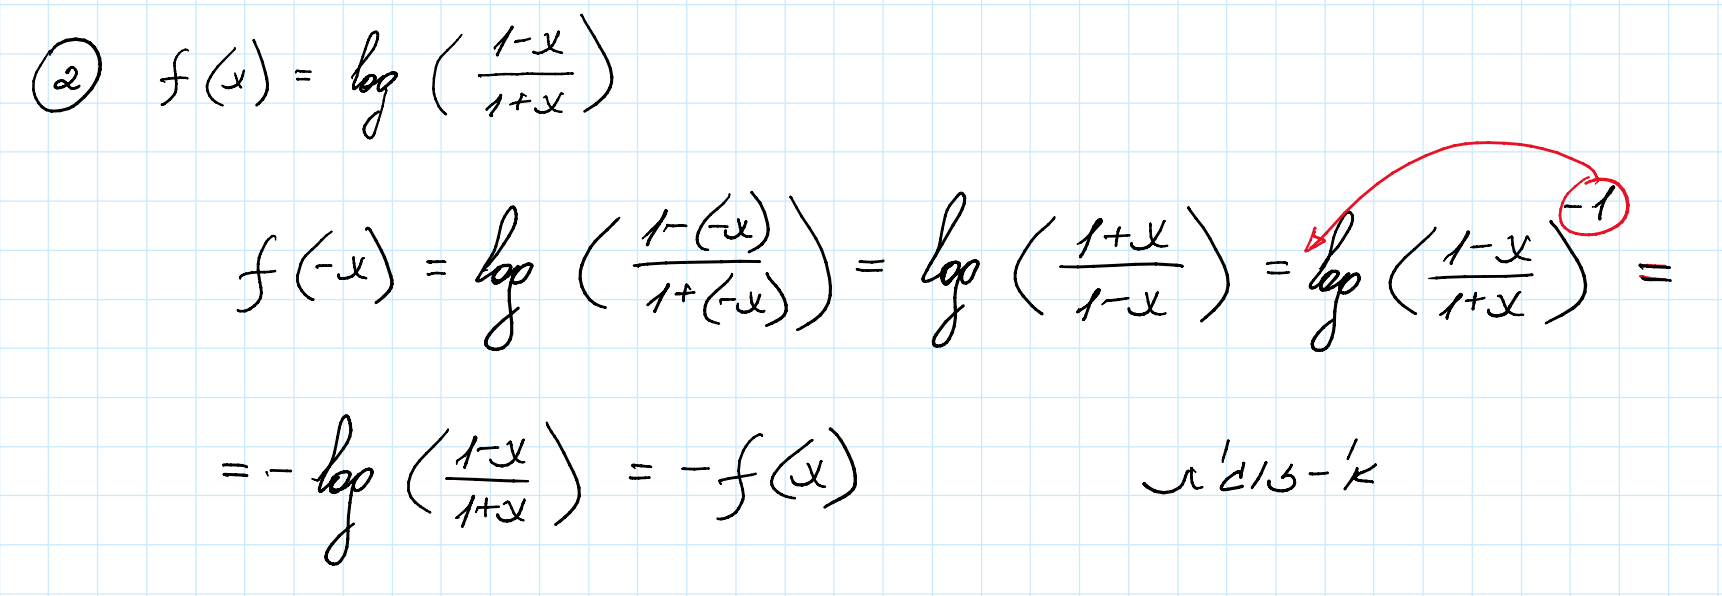 ② f(x) = log ( (1-x) / (1+x) )
f(-x) = log ( (1-(-x)) / (1+(-x)) ) = log ( (1+x) / (1-x) ) = log ( (1-x) / (1+x) )^-1 =
= - log ( (1-x) / (1+x) ) = - f(x) אי-זוגית